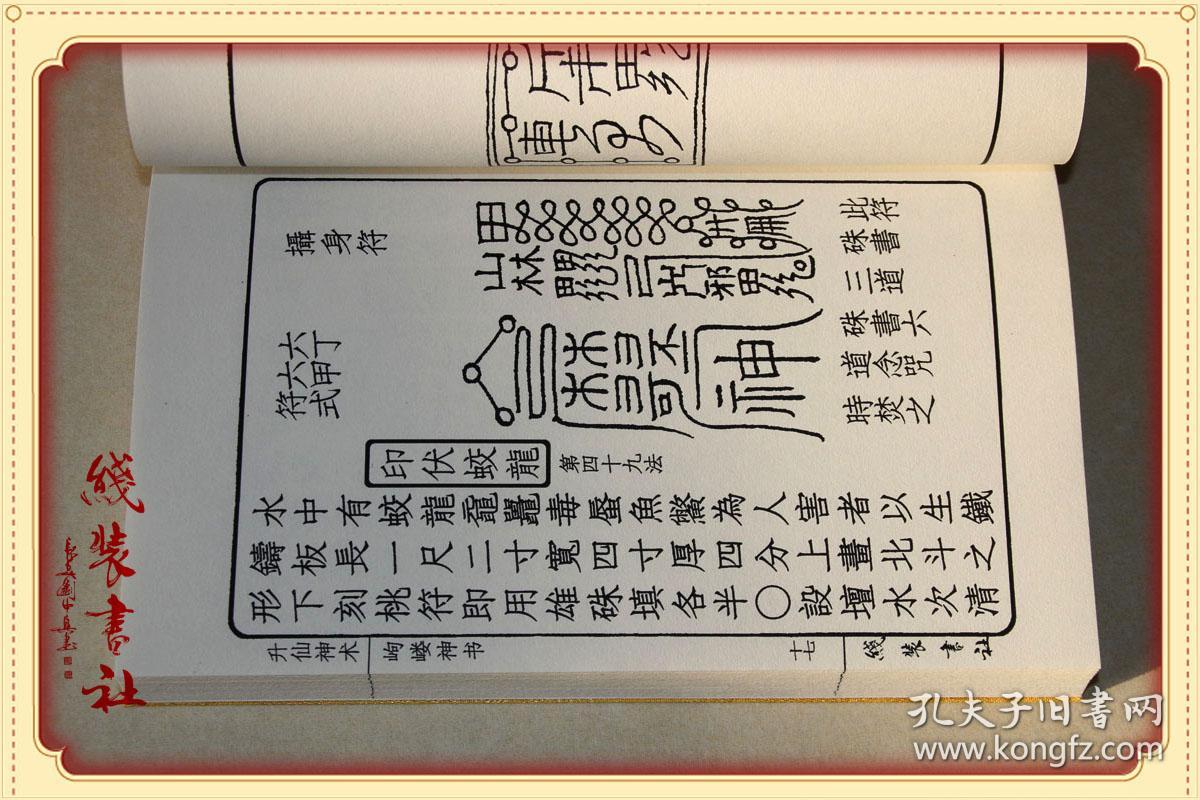 攝身符
此符
硃書
三道
六丁
六甲
符式
硃書六
道念咒
時焚之
印伏蛟龍
第四十九法
水中有蛟龍黿鼉毒蜃魚鱉為人害者以生鐵
鑄板長一尺二寸寬四寸厚四分上畫北斗之
形下刻桃符即用雄硃填各半〇設壇水次清
升仙神术
岣嵝神书
十七
綫装書社
綫装書社
孔夫子旧書网
www.kongfz.com